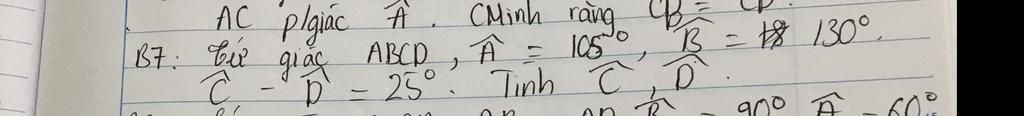 AC p/giác Â. CMinh rằng CB = CD
B7: Tứ giác ABCD, Â = 105°, B̂ = 130°.
Ĉ - D̂ = 25°. Tính Ĉ, D̂.
B̂ = 90° Â = 60°